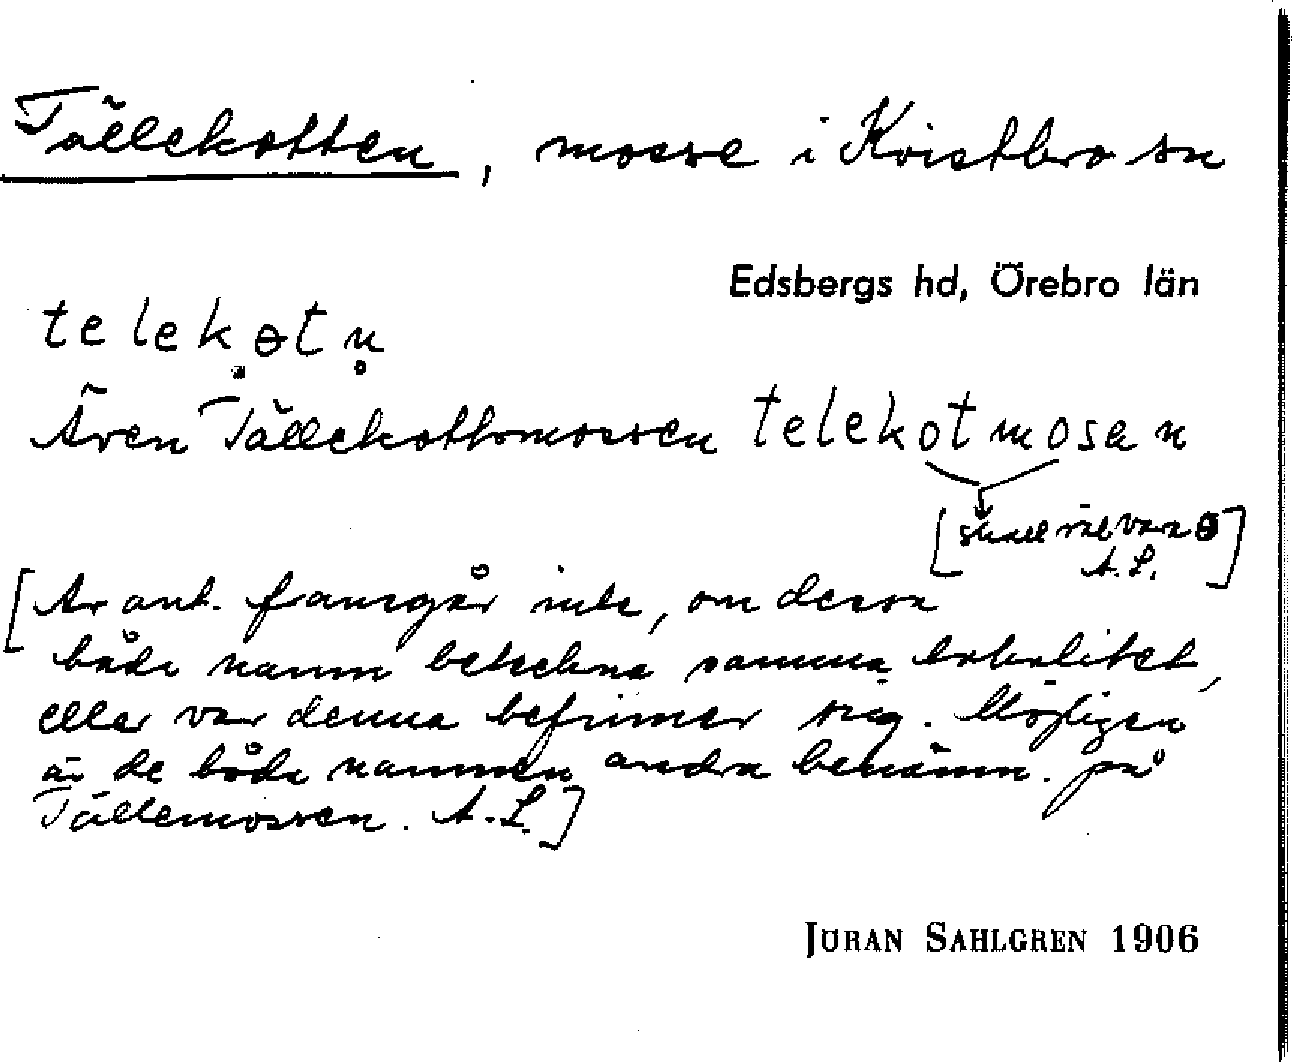 Tällekotten, mosse i Kvistbro sn
Edsbergs hd, Örebro län
telekɵtn̥
Även Tällekottmossen telekotmosen
[skall väl vara ɵ
A.L.]
[Av ant. framgår inte, om dessa
både namn beteckna samma lokalitet,
eller var denna befinner sig. Möjligen
är de båda namnen andra benämn. på
Tällemossen. A.L.]
JÖRAN SAHLGREN 1906